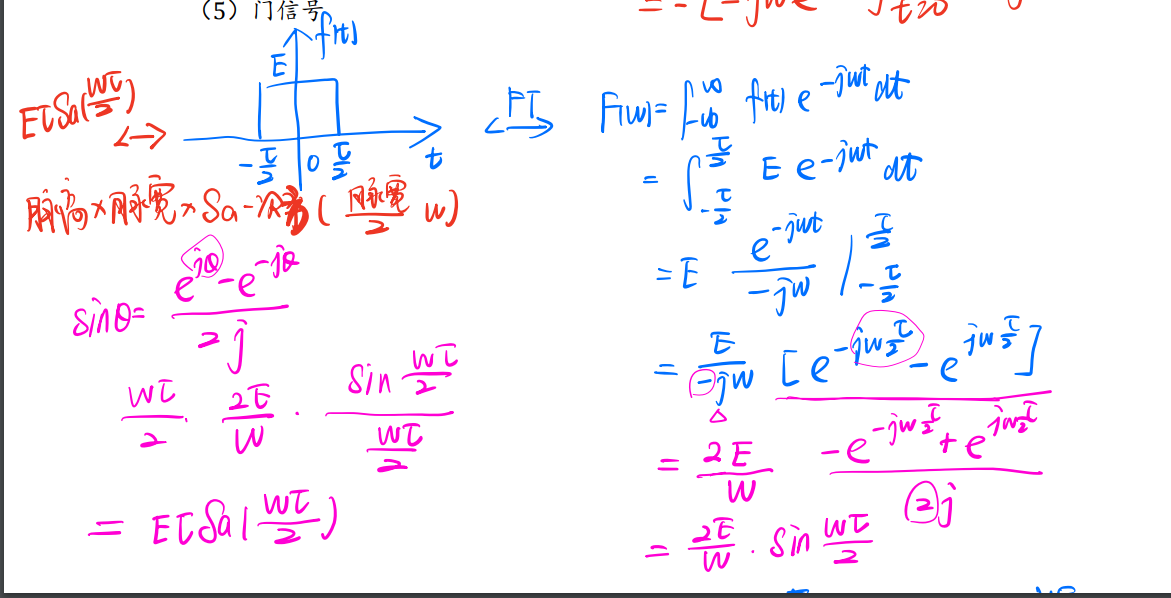 (5)门信号
f(t)
E
EτSa(ωτ/2)
↔
-τ/2 0 τ/2 t
脉高×脉宽×Sa一次方(脉宽/2 ω)
sinθ= (e^{jθ}-e^{-jθ})/2j
ωτ/2 · 2E/ω · (sin ωτ/2)/(ωτ/2)
= EτSa(ωτ/2)
FT
↔
F(ω)= ∫_{-∞}^{∞} f(t) e^{-jωt} dt
= ∫_{-τ/2}^{τ/2} E e^{-jωt} dt
= E e^{-jωt}/(-jω) |_{-τ/2}^{τ/2}
= E/(-jω) [e^{-jωτ/2} - e^{jωτ/2}]
= 2E/ω (-e^{-jωτ/2} + e^{jωτ/2})/2j
= 2E/ω · sin ωτ/2